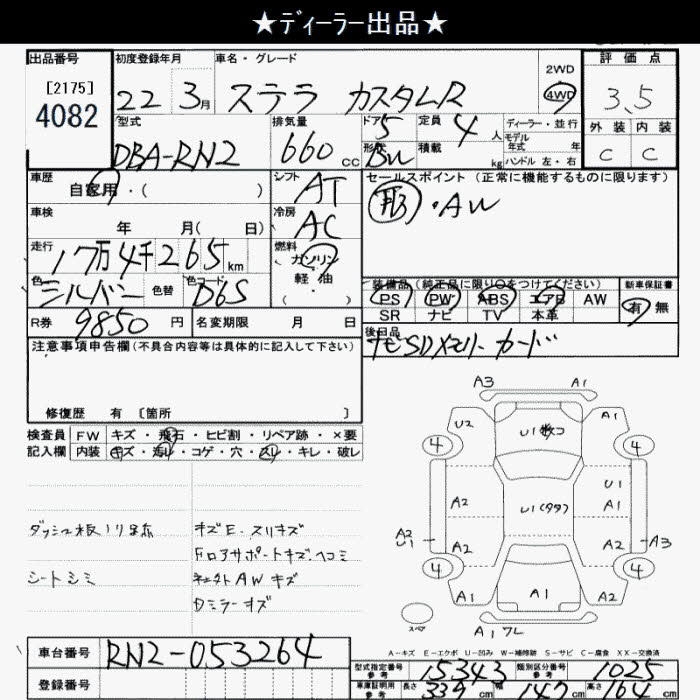 ★ディーラー出品★
出品番号 初度登録年月 車名・グレード 2WD 評価点
[2175] 4082 22 3月 ステラ カスタムR 4WD 3.5
型式 排気量 ドア 5 定員 4人 ディーラー・並行 外装 内装
DBA-RN2 660cc 形状 BW 積載 kg モデル年式 年 ハンドル左・右 C C
車歴 自家用・( ) シフト AT セールスポイント(正常に機能するものに限ります)
車検 年 月( 日) 冷房 AC ・AW
走行 17万4千265km 燃料 ガソリン
色 シルバー 色替 色コード D6S 軽油 ( ・ ) 装備品(純正品に限り○をつけてください) 新車保証書
PS PW ABS エアB AW 有 無
R券 9850円 名変期限 月 日 SR ナビ TV 本革
注意事項申告欄(不具合内容等は具体的に記入して下さい) 後日品
ナビSDメモリーカード
修復歴 有 〔箇所 〕
検査員 FW キズ・飛石・ヒビ割・リペア跡・×要
記入欄 内装 キズ・汚レ・コゲ・穴・スレ・キレ・破レ
A3 A1
U2 U1 A1
4 4
U1
A2 U1(タタ) A1
A2 U1 A2 A2 A3
4 4
A1 A1 A2
スペア A1 ワレ
キズE・スリキズ
シートシミ
ミラーキズ
A-キズ E-エクボ U-凹み W-補修跡 S-サビ C-腐食 XX-交換済
車台番号 RN2-053264 型式指定番号 参考 15343 類別区分番号 参考 1025
登録番号 車庫証明用 参考 長さ 339cm 幅 147cm 高さ 164cm